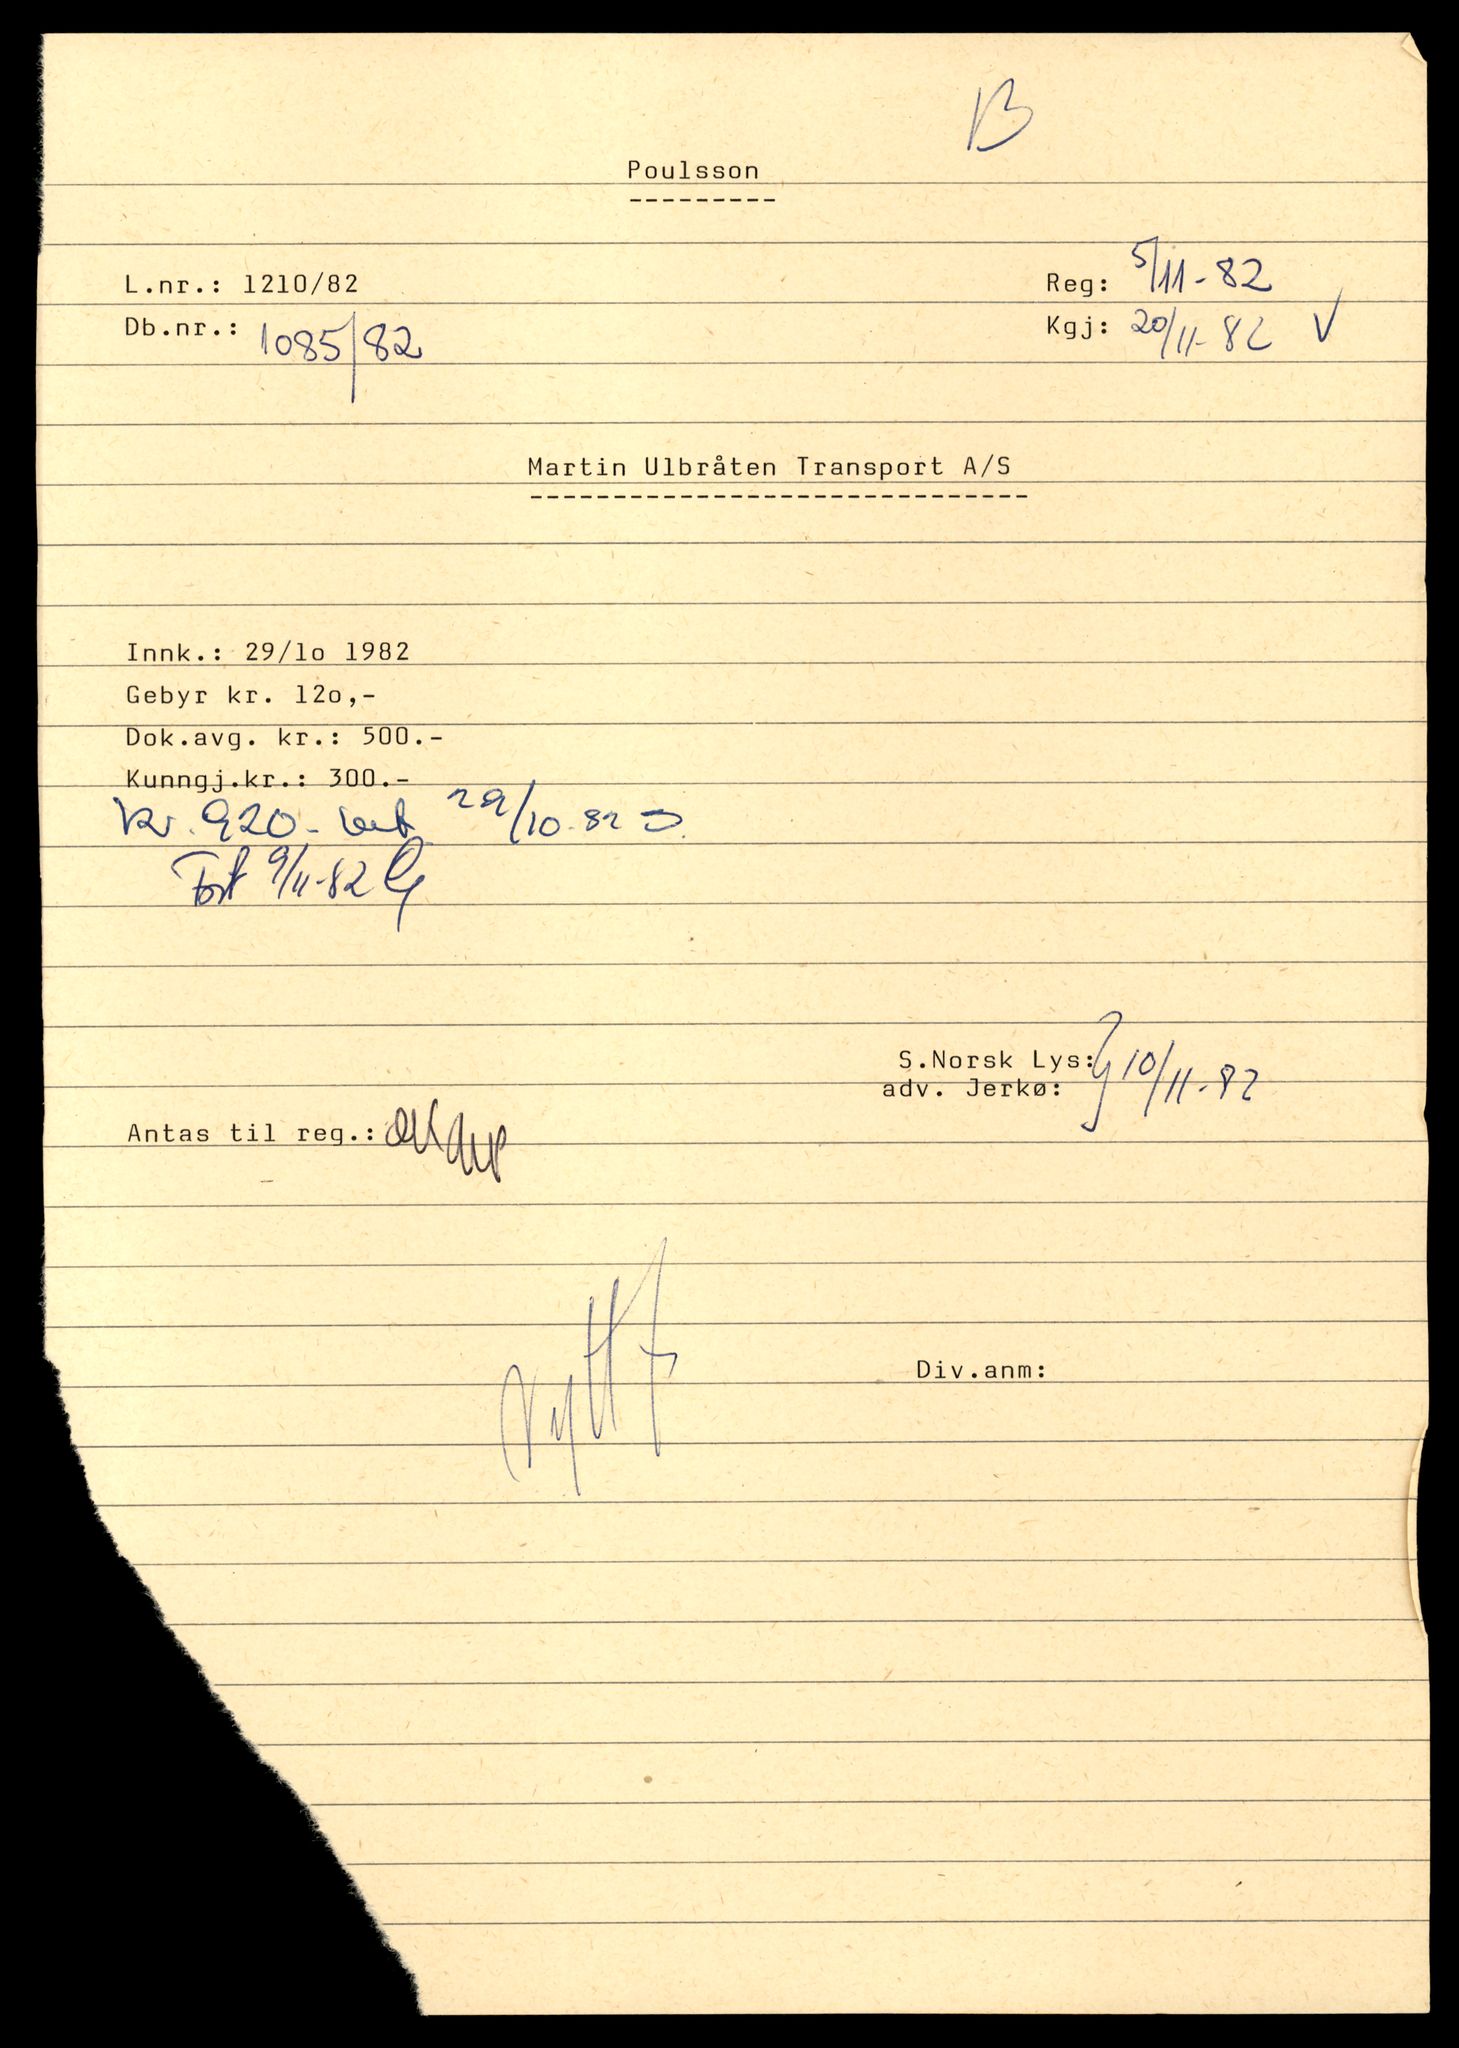 B
Poulsson
L.nr.: 1210/82
Reg: 5/11-82
Db.nr.: 1085/82
Kgj: 20/11-82 V
Martin Ulbråten Transport A/S
Innk.: 29/lo 1982
Gebyr kr. 12o,-
Dok.avg. kr.: 500.-
Kunngj.kr.: 300.-
kr. 920.- 29/10.82
9/11-82
S.Norsk Lys: 10/11-82
adv. Jerkø:
Antas til reg.: OK
Nytt f
Div.anm: